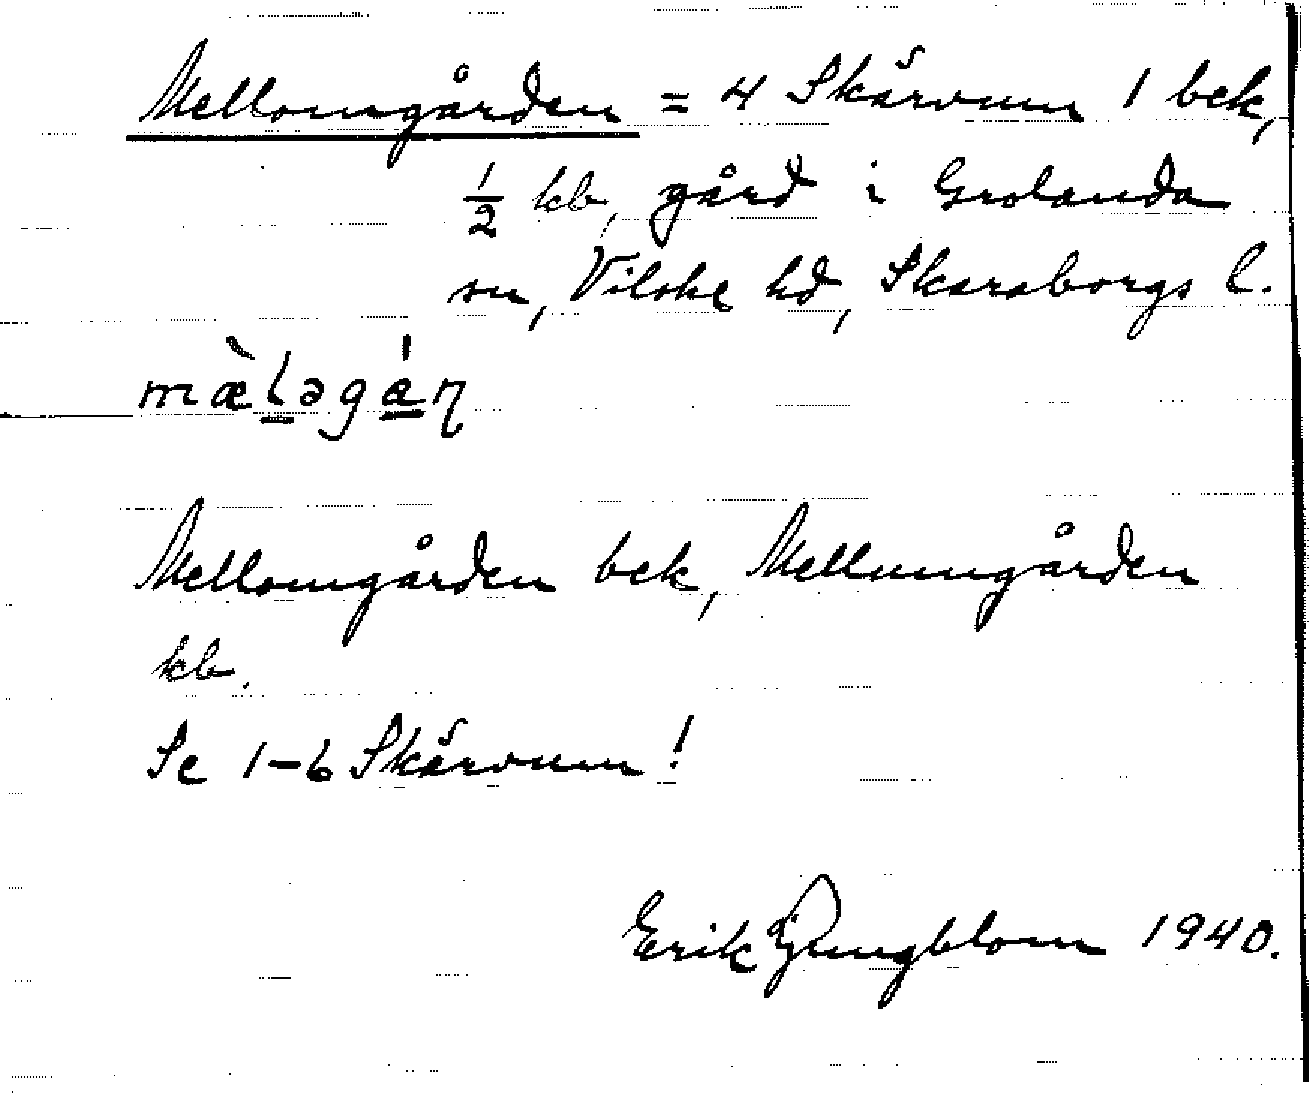 Mellomgården = 4 Skärvum 1 bek,
½ kb, gård i Grolanda
sn, Vilske hd, Skaraborgs l.
mæ̀lǝgán
Mellomgården bek, Mellumgården
kb.
Se 1-6 Skärvum!
Erik Ljungblom 1940.